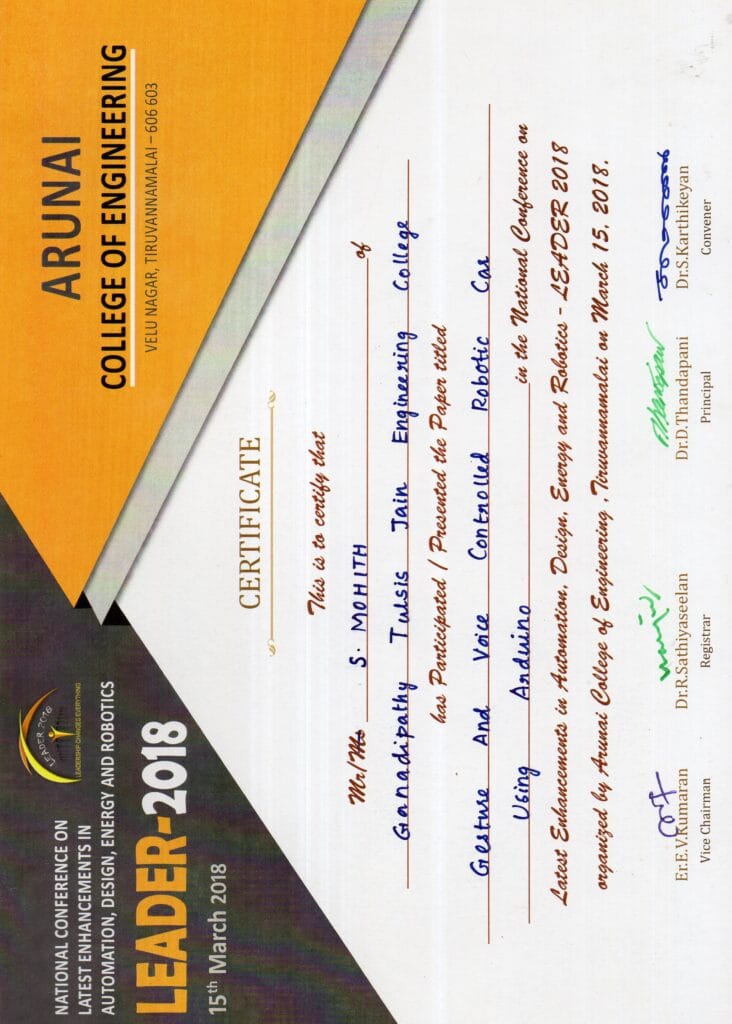 NATIONAL CONFERENCE ON
LATEST ENHANCEMENTS IN
AUTOMATION, DESIGN, ENERGY AND ROBOTICS
LEADER-2018
15th March 2018
LEADER 2018
LEADERSHIP CHANGES EVERYTHING
ARUNAI
COLLEGE OF ENGINEERING
VELU NAGAR, TIRUVANNAMALAI – 606 603
CERTIFICATE
This is to certify that
Mr/Ms S. MOHITH of
Ganadipathy Tulsis Jain Engineering College
has Participated / Presented the Paper titled
Gesture And Voice Controlled Robotic Car
Using Arduino in the National Conference on
Latest Enhancements in Automation, Design, Energy and Robotics - LEADER 2018
organized by Arunai College of Engineering , Tiruvannamalai on March 15, 2018.
Er.E.V.Kumaran
Vice Chairman
Dr.R.Sathiyaseelan
Registrar
Dr.D.Thandapani
Principal
Dr.S.Karthikeyan
Convener